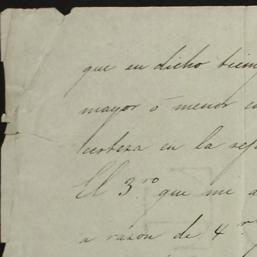 que en dicho tiem
mayor ó menor
certeza en la
El 3.ro que me a
a razon de 4